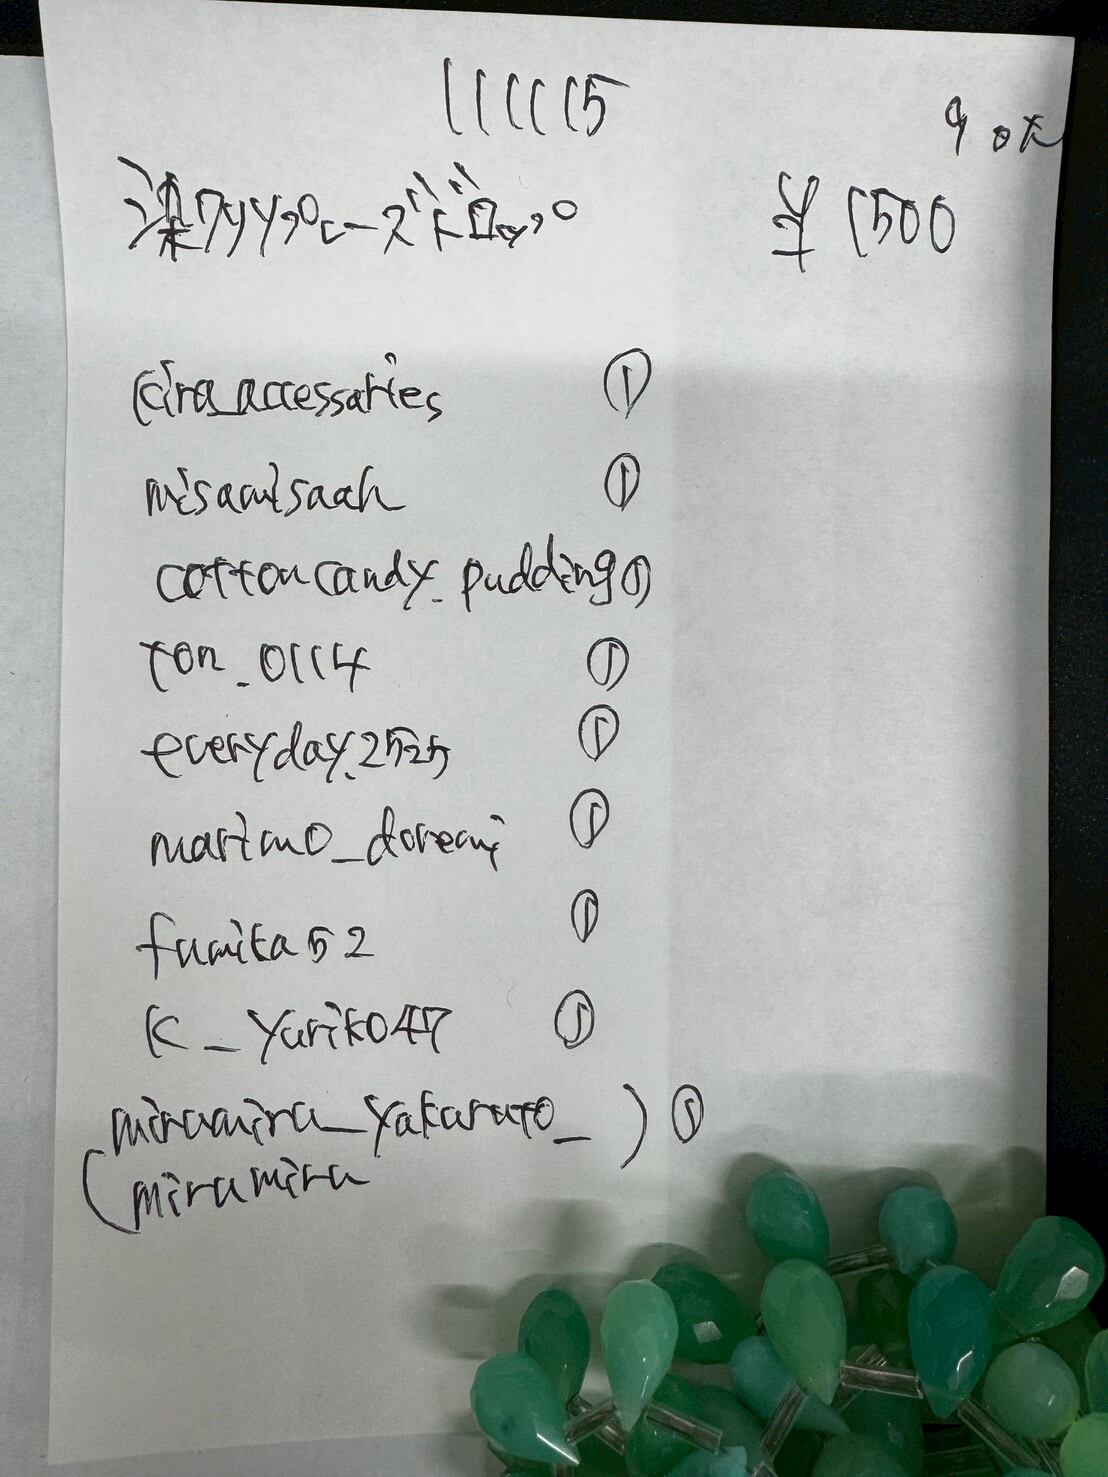 1111115
染クリソプレーズドロップ
¥1500
kira_accessaries ①
misamisaah ①
cottoncandy_pudding ①
ton_0114 ①
everyday.2525 ①
marimo_doremi ①
fumika52 ①
K_yuriko47 ①
miramira_yakaruto_) ①
(miramira